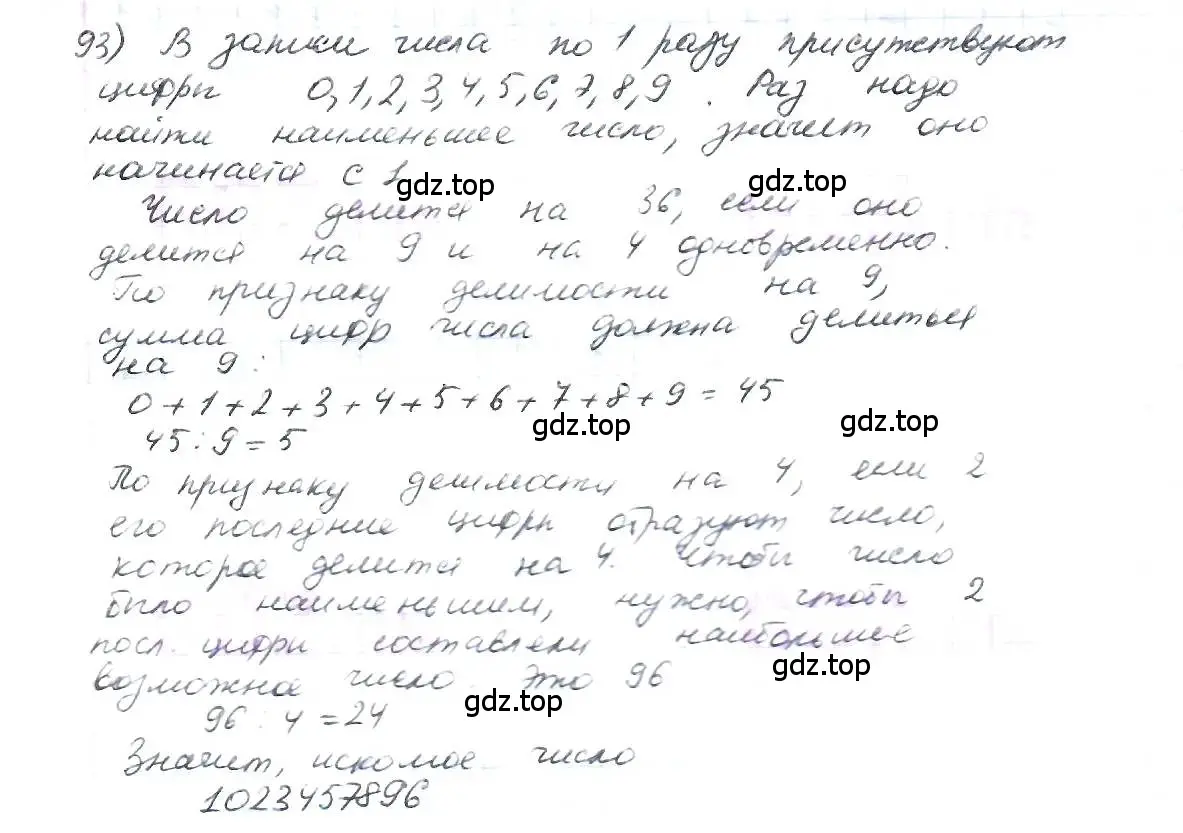 93) В записи числа по 1 разу присутствуют
цифры 0,1,2,3,4,5,6,7,8,9. Раз надо
найти наименьшее число, значит оно
начинается с 1
gdz.top gdz.top
Число делится на 36, если оно
делится на 9 и на 4 одновременно.
По признаку делимости на 9,
сумма цифр числа должна делиться
на 9:
0+1+2+3+4+5+6+7+8+9=45
gdz.top gdz.top
45:9=5
По признаку делимости на 4, если 2
его последние цифры образуют число,
которое делится на 4. Чтобы число
было наименьшим, нужно, чтобы 2
посл. цифры составляли наибольшее
gdz.top
возможное число. Это 96
gdz.top
96:4=24
Значит, искомое число
1023457896